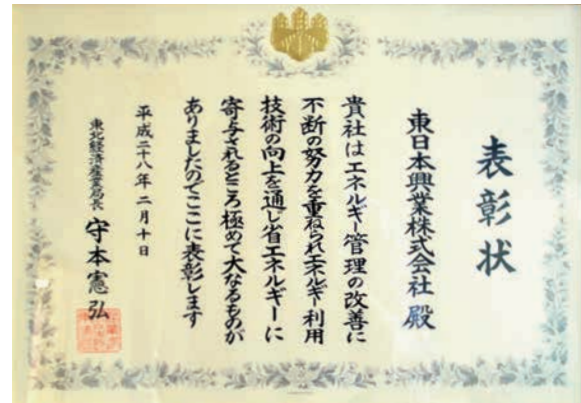 表彰状
東日本興業株式会社 殿
貴社はエネルギー管理の改善に
不断の努力を重ねられエネルギー利用
技術の向上を通じ省エネルギーに
寄与されるところ極めて大なるものが
ありましたのでここに表彰します
平成二十八年二月十日
東北経済産業局長 守本憲弘